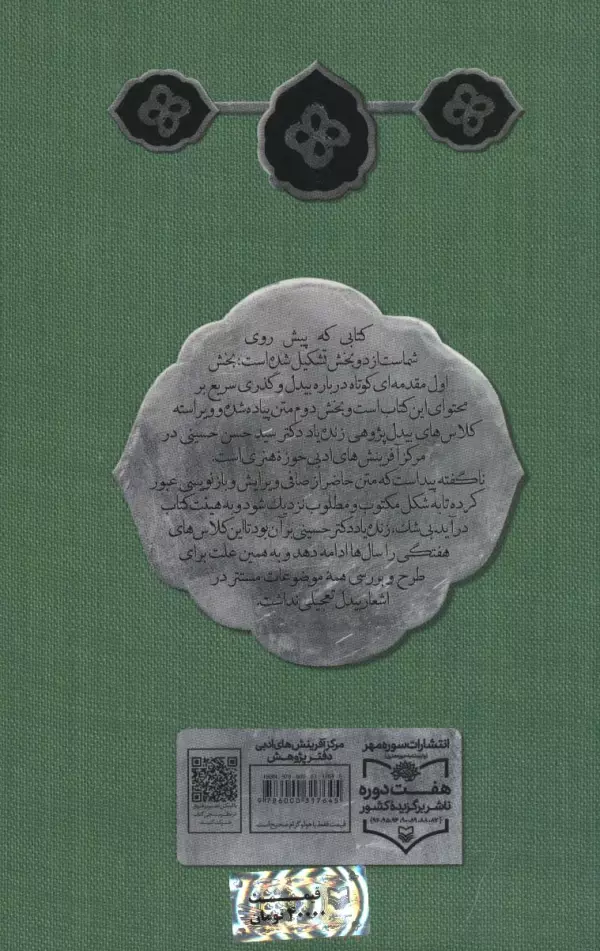 کتابی که پیش روی
شماست از دو بخش تشکیل شده است؛ بخش
اول مقدمه‌ای کوتاه درباره بیدل و گذری سریع بر
محتوای این کتاب است و بخش دوم متن پیاده شده و ویراسته
کلاس‌های بیدل پژوهی زنده‌یاد دکتر سید حسن حسینی در
مرکز آفرینش‌های ادبی حوزه هنری است.
ناگفته پیداست که متن حاضر از صافی ویرایش و بازنویسی عبور
کرده تا به شکل مکتوب و مطلوب نزدیک شود و به هیئت کتاب
درآید. بی‌شک، زنده‌یاد دکتر حسینی بر آن بود تا این کلاس‌های
هفتگی را سال‌ها ادامه دهد و به همین علت برای
طرح و بررسی همهٔ موضوعات مستتر در
اشعار بیدل تعجیلی نداشت.
انتشارات سوره مهر
هفت دوره
ناشر برگزیدهٔ کشور
مرکز آفرینش‌های ادبی
دفتر پژوهش
قیمت فقط با هولوگرام صحیح است.
قیمت
۴۰۰۰۰ تومان